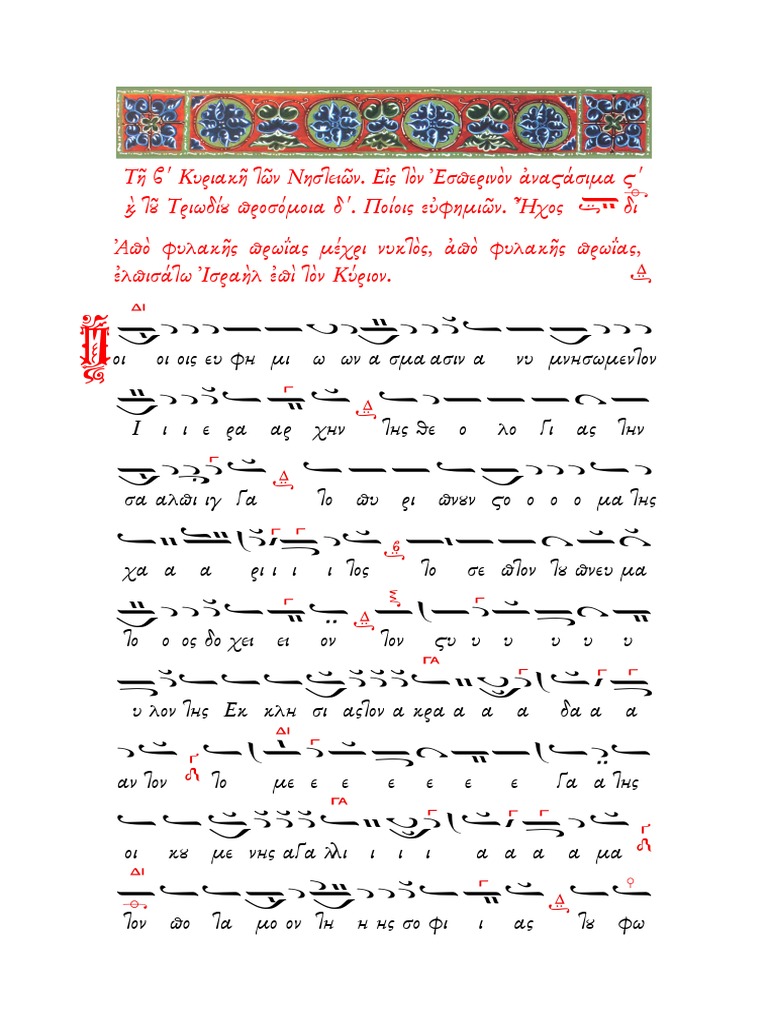 Τῇ β΄ Κυριακῇ τῶν Νηστειῶν. Εἰς τὸν Ἑσπερινὸν ἀναστάσιμα ϛ΄
ϗ τȣ͂ Τριωδίȣ προσόμοια δ΄. Ποίοις εὐφημιῶν. Ἦχος δι
Ἀπὸ φυλακῆς πρωΐας μέχρι νυκτὸς, ἀπὸ φυλακῆς πρωΐας,
ἐλπισάτω Ἰσραὴλ ἐπὶ τὸν Κύριον. Δ
ΔΙ
Ποι οι οις ευ φη μι ω ων α σμα α σιν α νυ μνη σω μεν τον
Ι ι ι ε ρα αρ χην της θε ο λο γι ας την
σα αλ πι ιγ γα το πυ ρι πνȣν ϛο ο ο ο μα της
χα α α ρι ι ι ι τος το σε πτον τȣ πνευ μα
το ο ος δο χει ει ον τον ϛυ υ υ υ υ υ
ΓΑ
υ λον της Εκ κλη σι ας τον α κρα α α α δα α α
ΔΙ
αν τον το με ε ε ε ε ε ε γα α της
ΓΑ
οι κȣ με νης α γα λλι ι ι ι α α α α μα
ΔΙ
τον πο τα μο ον τη η ης σο φι ι ας τȣ φω